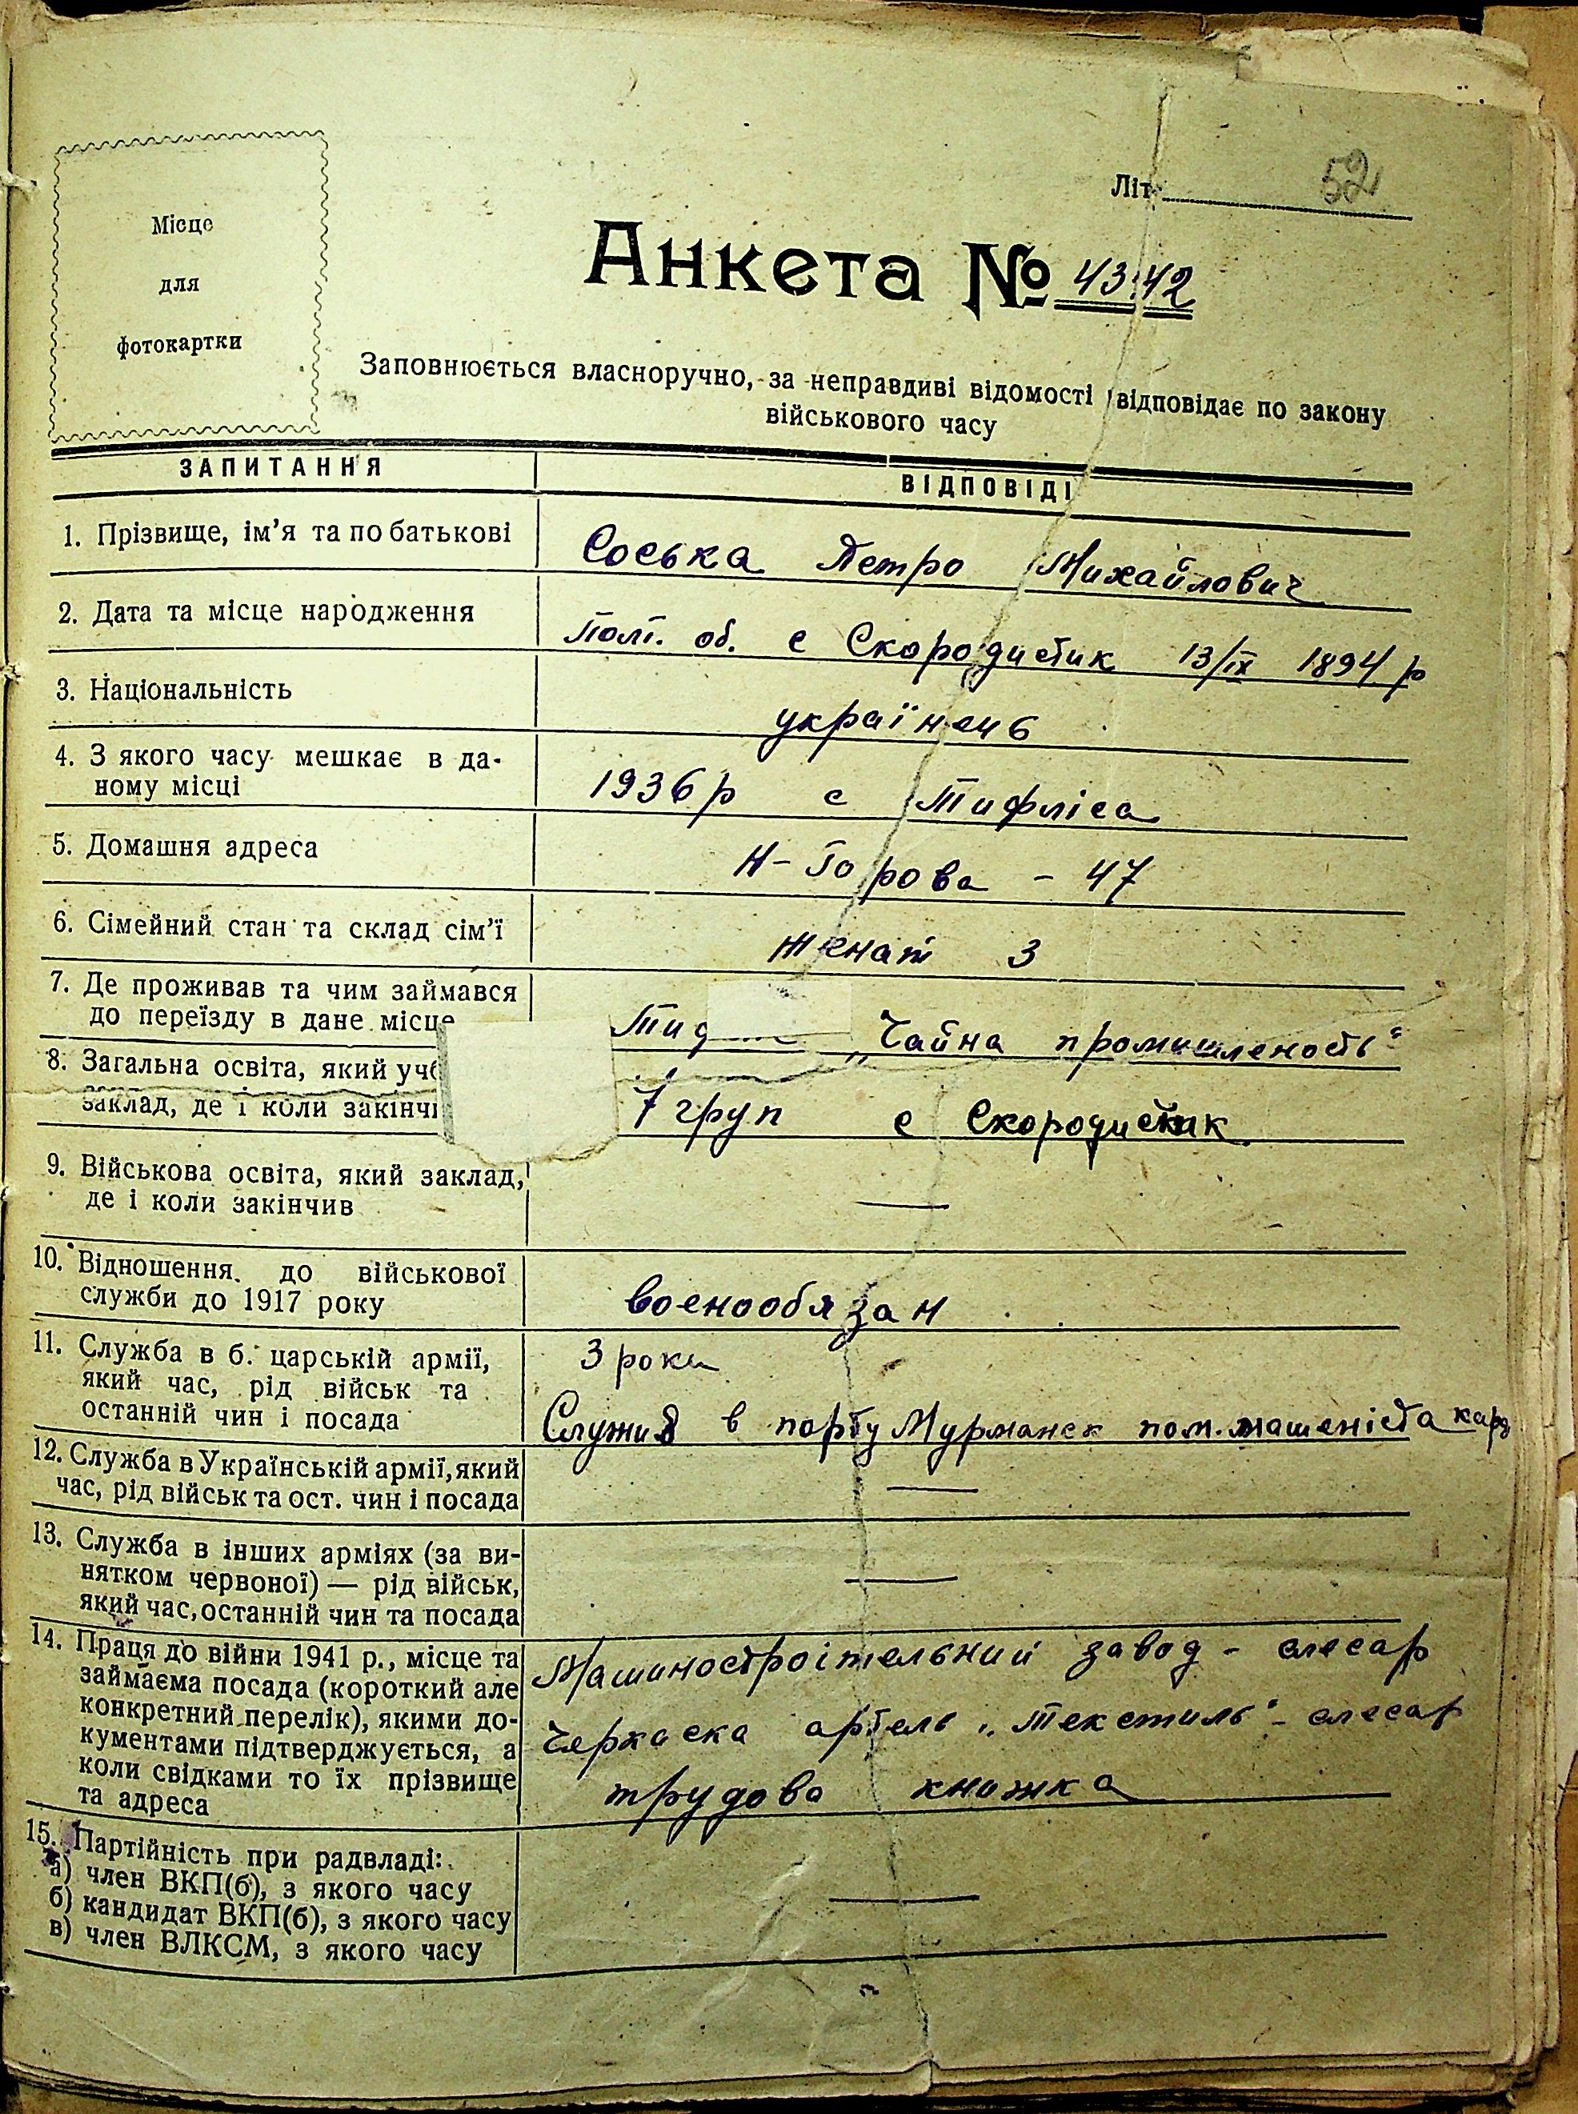 52
Літ.
Місце
для
фотокартки
Анкета № 4342
Заповнюється власноручно, за неправдиві відомості відповідає по закону
військового часу
ЗАПИТАННЯ
ВІДПОВІДІ
1. Прізвище, ім’я та по батькові
Соська Петро Михайлович
2. Дата та місце народження
Полт. об. с Скородистик 13/ІХ 1894 р
3. Національність
українець
4. З якого часу мешкає в да-
ному місці
1936 р с Тифліса
5. Домашня адреса
Н-Горова - 47
6. Сімейний стан та склад сім’ї
женат 3
7. Де проживав та чим займався
до переїзду в дане місце
„Чайна промишленость"
8. Загальна освіта, який учб
заклад, де і коли закінчи
7 груп с Скородистик
9. Військова освіта, який заклад,
де і коли закінчив
—
10. Відношення до військової
служби до 1917 року
военообязан
11. Служба в б. царській армії,
який час, рід військ та
останній чин і посада
3 роки
Служив в порту Мурманск пом. машеніста
12. Служба в Українській армії, який
час, рід військ та ост. чин і посада
—
13. Служба в інших арміях (за ви-
нятком червоної) — рід військ,
який час, останній чин та посада
—
14. Праця до війни 1941 р., місце та
займаєма посада (короткий але
конкретний перелік), якими до-
кументами підтверджується, а
коли свідками то їх прізвище
та адреса
Машиностроітельний завод - слесар
Черкаска артель „Текстиль" - слесар
трудова книжка
15. Партійність при радвладі:
а) член ВКП(б), з якого часу
б) кандидат ВКП(б), з якого часу
в) член ВЛКСМ, з якого часу
—